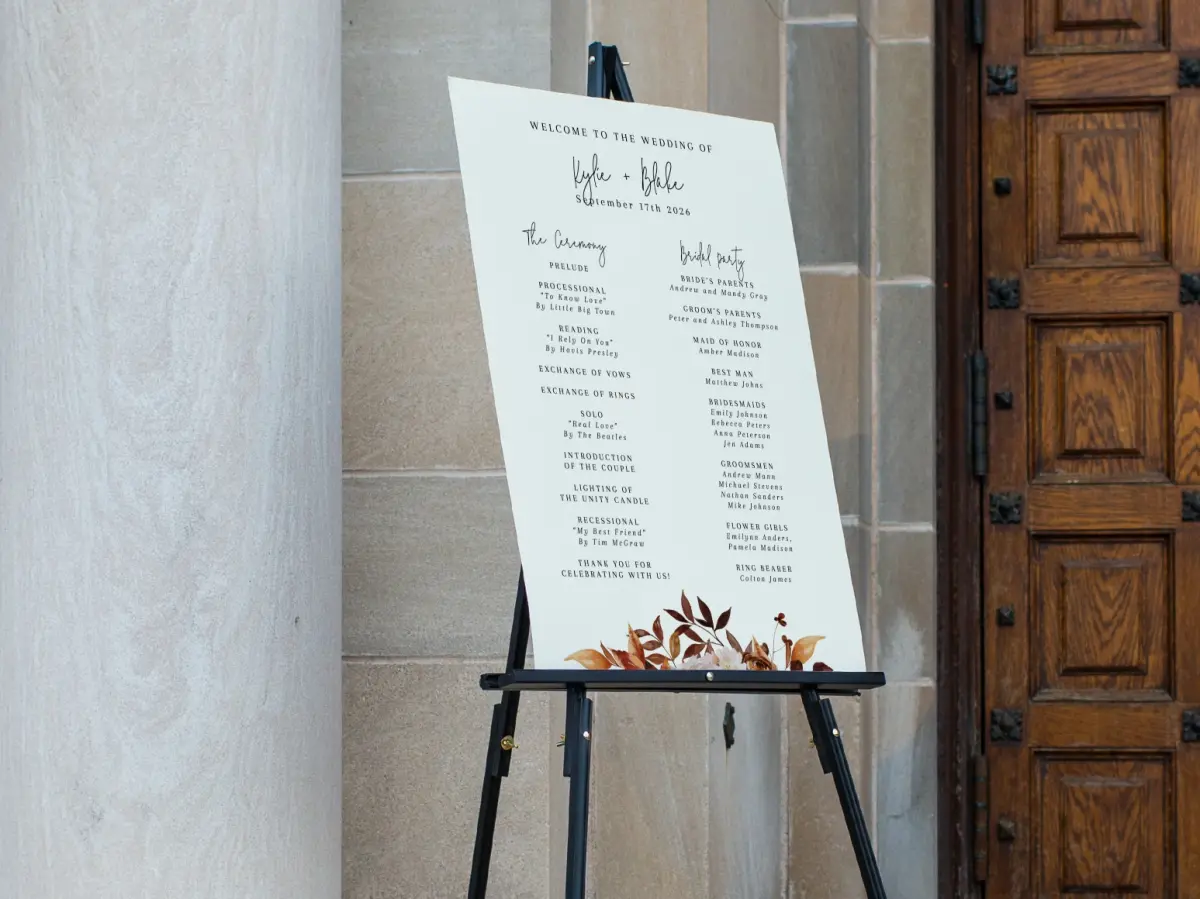 WELCOME TO THE WEDDING OF
Kylie + Blake
September 17th 2026
The Ceremony
PRELUDE
PROCESSIONAL
"To Know Love"
By Little Big Town
READING
"I Rely On You"
By Hovis Presley
EXCHANGE OF VOWS
EXCHANGE OF RINGS
SOLO
"Real Love"
By The Beatles
INTRODUCTION
OF THE COUPLE
LIGHTING OF
THE UNITY CANDLE
RECESSIONAL
"My Best Friend"
By Tim McGraw
THANK YOU FOR
CELEBRATING WITH US!
Bridal party
BRIDE'S PARENTS
Andrew and Mandy Gray
GROOM'S PARENTS
Peter and Ashley Thompson
MAID OF HONOR
Amber Madison
BEST MAN
Matthew Johns
BRIDESMAIDS
Emily Johnson
Rebecca Peters
Anna Peterson
Jen Adams
GROOMSMEN
Andrew Mann
Michael Stevens
Nathan Sanders
Mike Johnson
FLOWER GIRLS
Emilynn Anders,
Pamela Madison
RING BEARER
Colton James